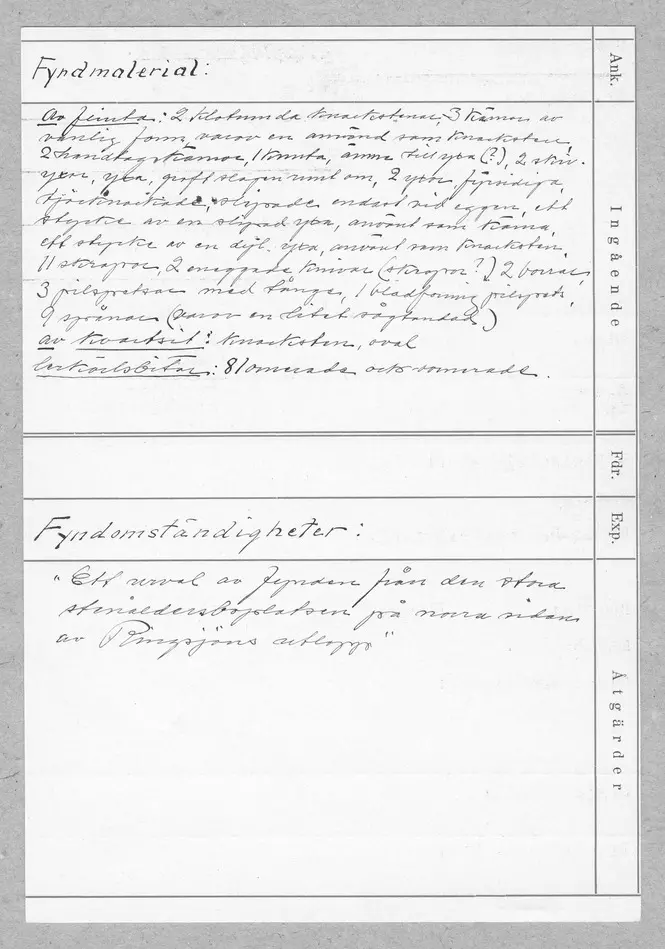 Fyndmaterial:
Av flinta: 2 klotrunda knackstenar, 3 kärnor av
vanlig form, varav en använd som knacksten,
2 handtagskärnor, 1 knuta, ämne till yxa (?), 2 skiv-
yxor, yxa, groft slagen runt om, 2 yxor, fyrsidiga,
tjocknackade, slipade endast vid eggen, ett
stycke av en slipad yxa, använt som kärna,
ett stycke av en dyl. yxa, använt som knacksten,
11 skrapor, 2 eneggade knivar (skrapor?), 2 borrar,
3 pilspetsar med tånge, 1 bladformig pilspets,
9 spånor (varav en litet sågtandad)
av kvartsit: knacksten, oval
lerkärlsbitar: 81 ornerade och oornerade.
Fyndomständigheter:
"Ett urval av fynden från den stora
stenåldersboplatsen på norra sidan
av Ringsjöns utlopp"
Ank.
Ingående
Fdr.
Exp.
Åtgärder